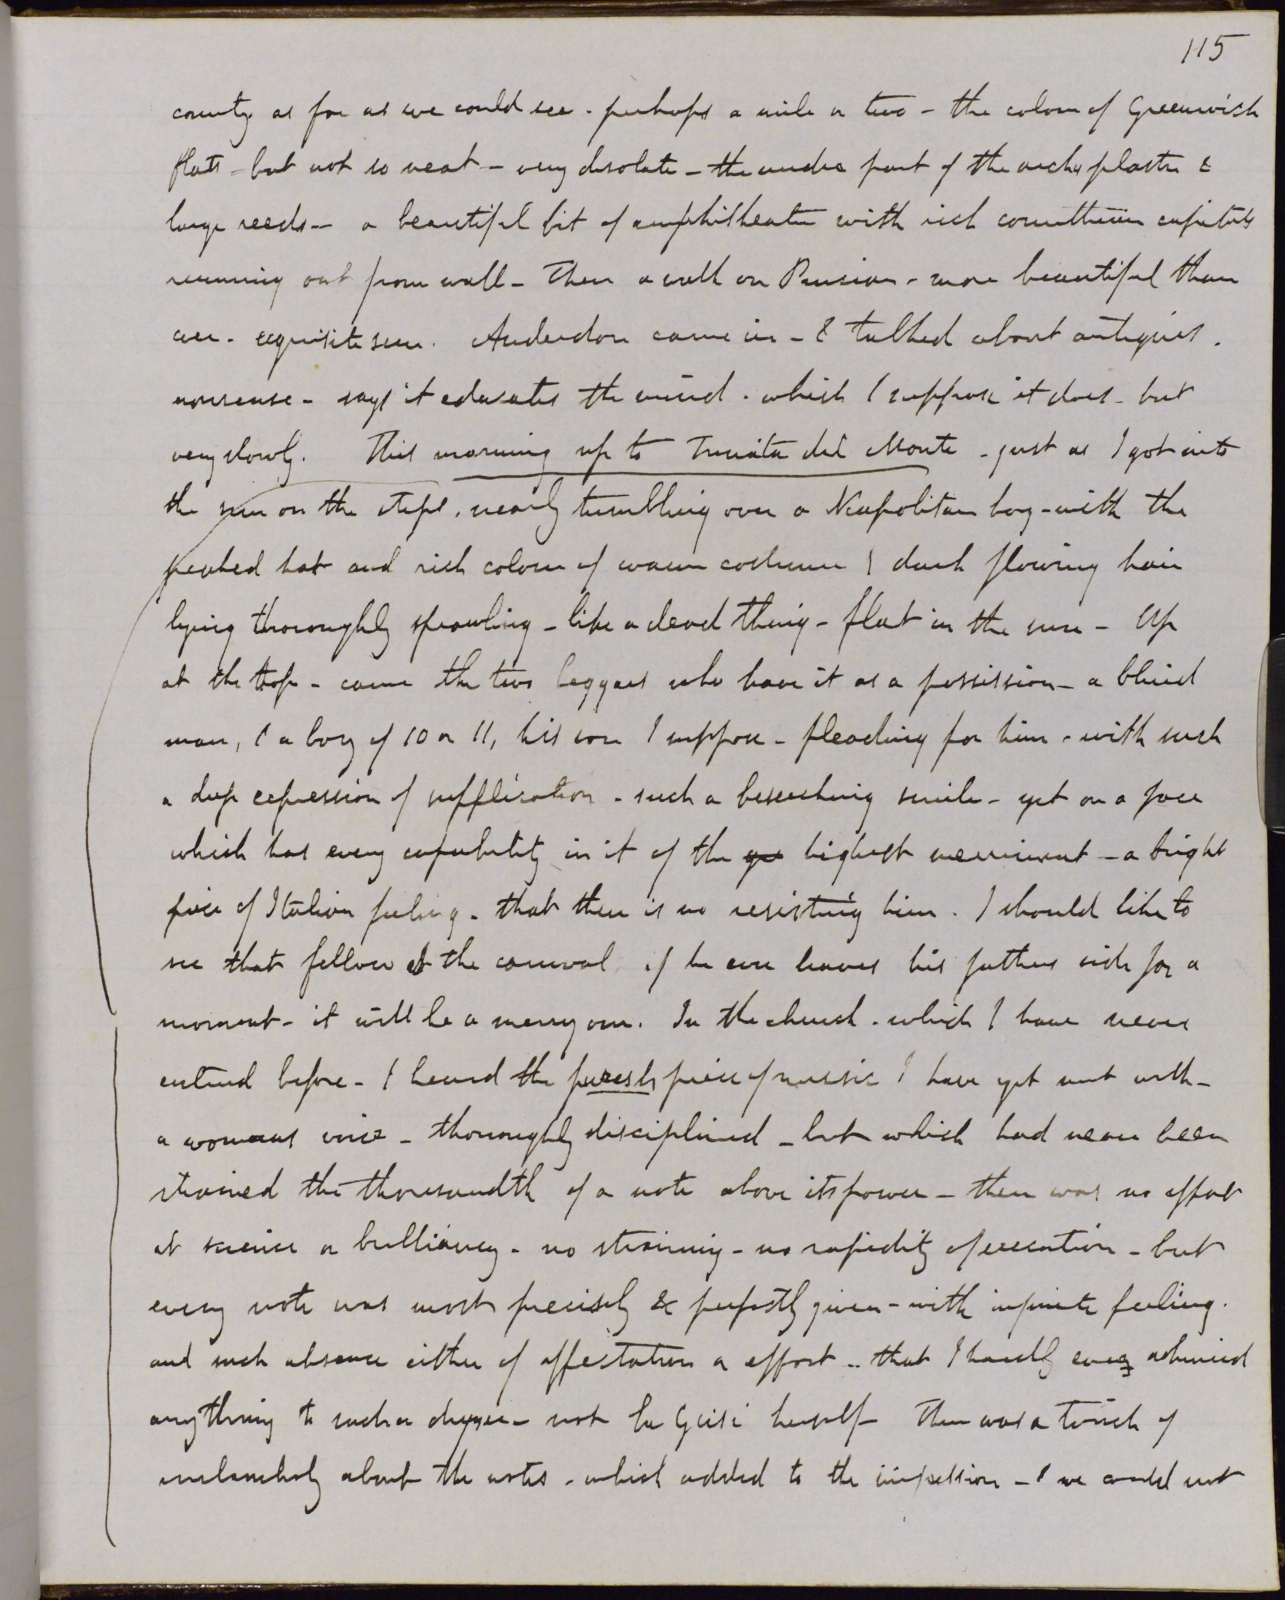 115
country as far as we could see - perhaps a mile or two - the colour of Greenwich
flats - but not so neat - very desolate - the under part of the archs plaster &
large reeds - a beautiful bit of amphitheatre with rich corinthian capitals
running out from wall - Then a walk on Pincian - more beautiful than
ever - exquisite sun. Anderdon came in - & talked about antiquities.
nonsense - says it educates the mind - which I suppose it does - but
very slowly. This morning up to Trinita del Monte - just as I got into
the sun on the steps, nearly tumbling over a Neapolitan boy - with the
peaked hat and rich colour of warm costume & dark flowing hair
lying thoroughly sprawling - like a dead thing - flat in the sun - Up
at the top - came the two beggars who have it as a possission - a blind
man, & a boy of 10 or 11, his son I suppose - pleading for him - with such
a deep expression of supplication - such a beseeching smile - yet on a face
which has every capability in it of the highest merriment - a bright
piece of Italian feeling - that there is no resisting him. I should like to
see that fellow at the carnival, if he ever leaves his fathers side for a
moment - it will be a merry one. In the church - which I have never
entered before - I heard the purest piece of music I have yet met with -
a womans voice - thoroughly disciplined - but which had never been
strained the thousandth of a note above its power - there was no effort
at science or brilliancy - no straining - no rapidity of execution - but
every note was most precisely & perfectly given - with infinite feeling.
and such absence either of affectation or effort - that I hardly ever admired
anything to such a degree - not La Grisi herself There was a touch of
melancholy about the notes - which added to the impression - & we could not